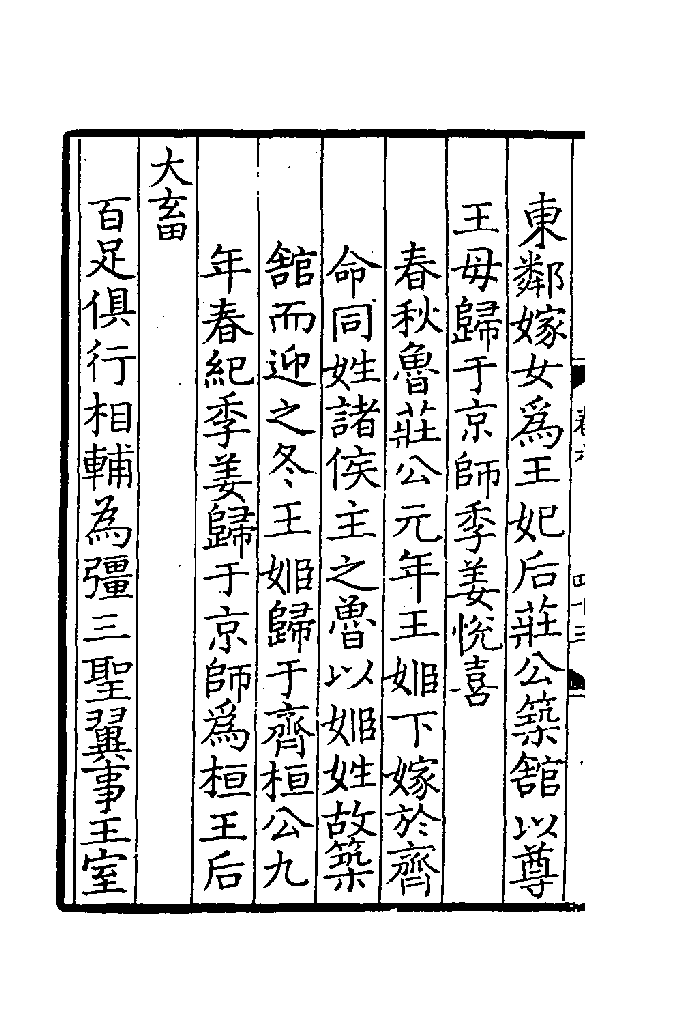 東鄰嫁女爲王妃后莊公築舘以尊
王母歸于京師季姜悅喜
春秋魯莊公元年王姬下嫁於齊
命同姓諸侯主之魯以姬姓故築
舘而迎之冬王姬歸于齊桓公九
年春紀季姜歸于京師爲桓王后
大畜
百足俱行相輔為彊三聖翼事王室